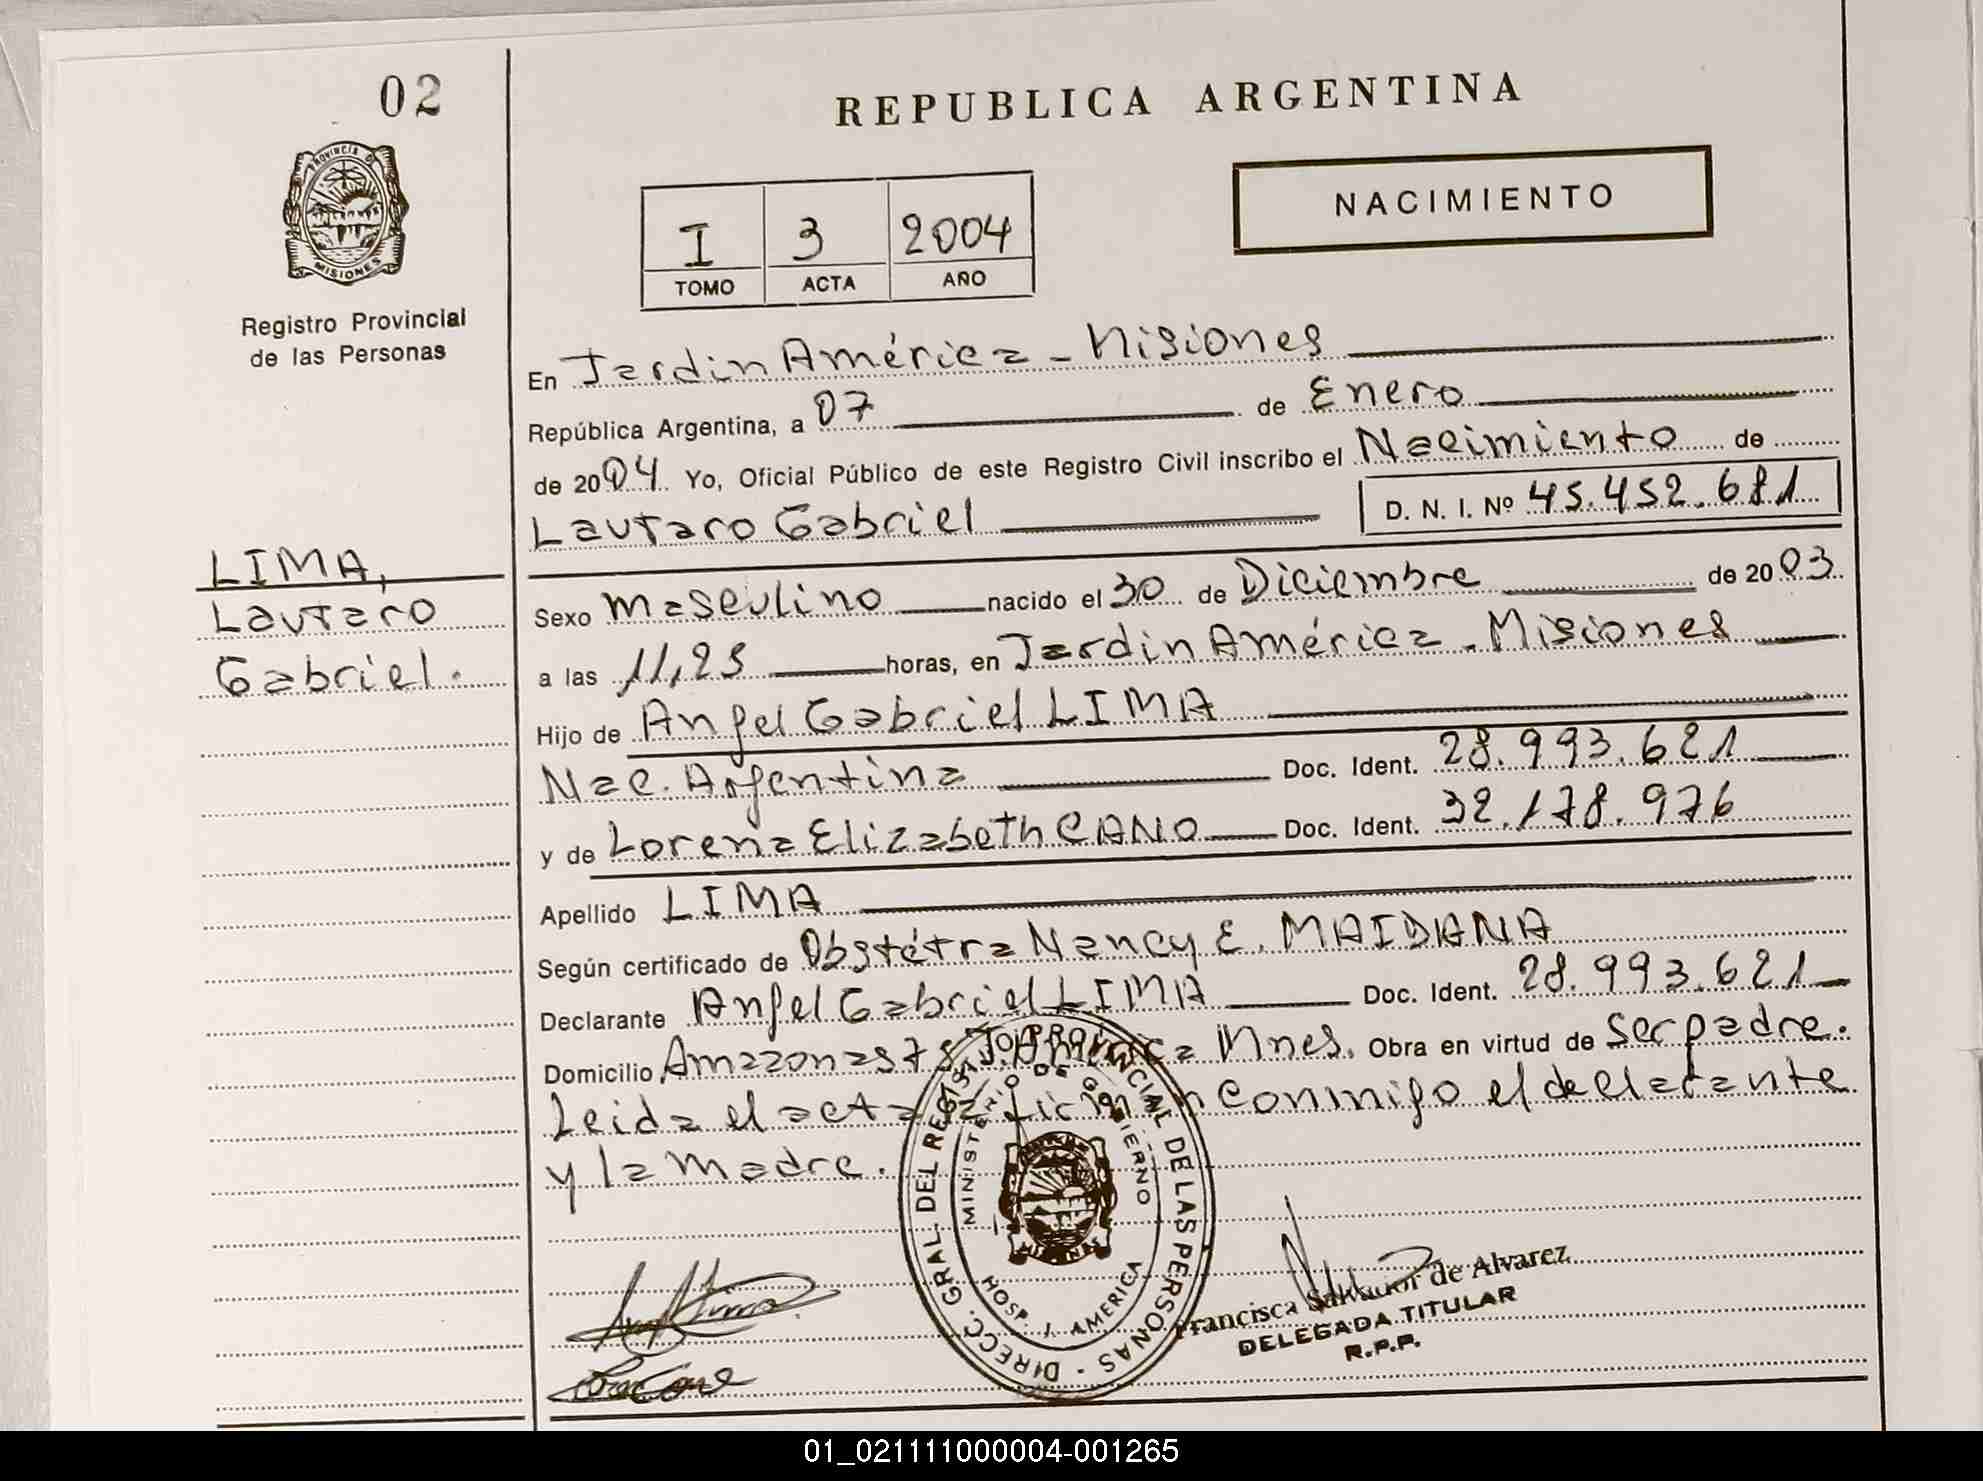 02
REPUBLICA ARGENTINA
PROVINCIA DE
MISIONES
Registro Provincial
de las Personas
NACIMIENTO
I 3 2004
TOMO ACTA AÑO
En Jardin América - Misiones
República Argentina, a 07 de Enero
de 2004 Yo, Oficial Público de este Registro Civil inscribo el Nacimiento de
Lautaro Gabriel D. N. I. Nº 45.452.681
LIMA,
Lautaro
Gabriel.
Sexo Masculino nacido el 30 de Diciembre de 2003
a las 11,25 horas, en Jardin América - Misiones
Hijo de Angel Gabriel LIMA
Nac. Argentina Doc. Ident. 28.993.621
y de Lorena Elizabeth CANO Doc. Ident. 32.178.976
Apellido LIMA
Según certificado de Obstétra Nancy E. MAIDANA
Declarante Angel Gabriel LIMA Doc. Ident. 28.993.621
Domicilio Amazonas Mnes. Obra en virtud de Ser padre.
Leida el acta conmigo el declarante
y la madre.
DIRECC. GRAL. DEL REGISTRO PROVINCIAL DE LAS PERSONAS
MINISTERIO DE GOBIERNO
HOSP. J. AMERICA
MISIONES
Francisca Salvador de Alvarez
DELEGADA TITULAR
R.P.P.
01_021111000004-001265